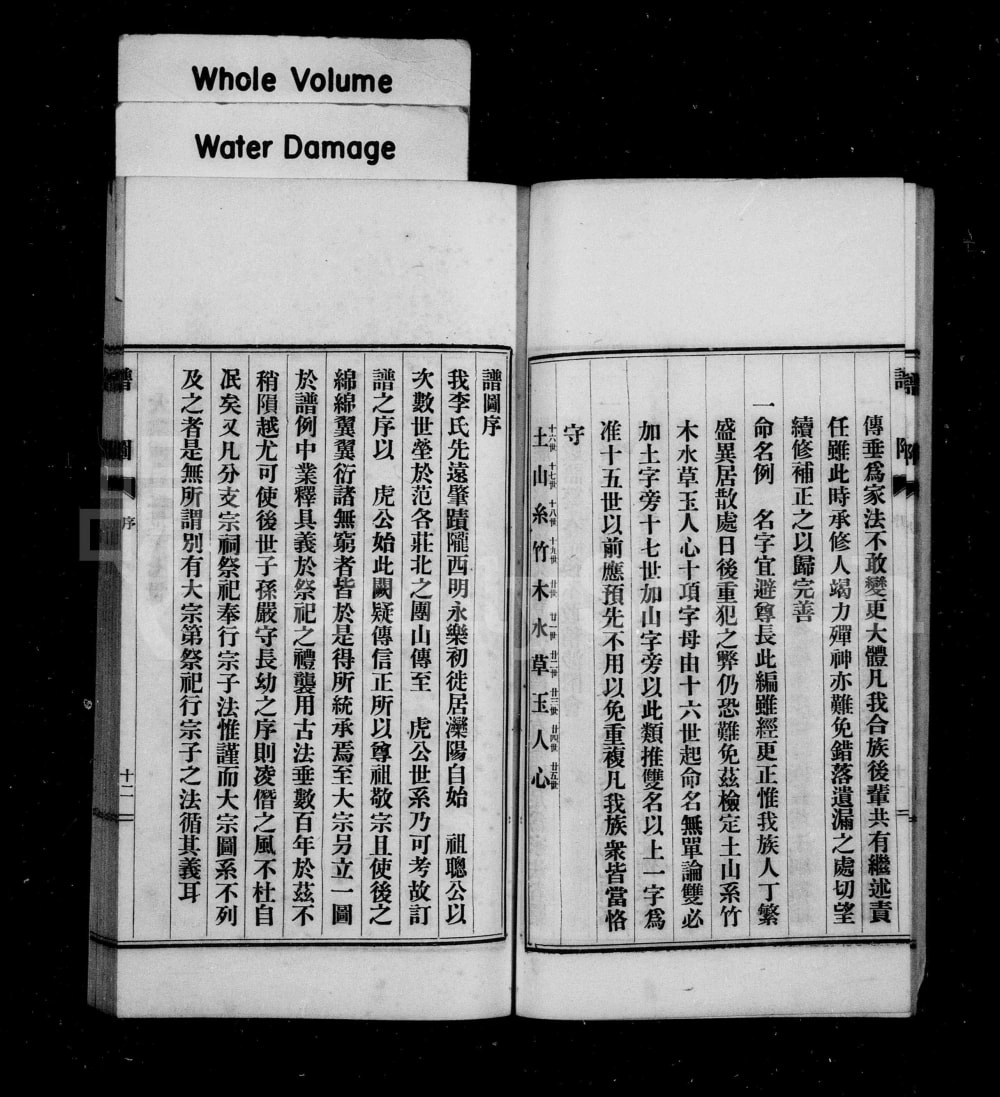 Whole Volume
Water Damage
譜
傳垂爲家法不敢變更大體凡我合族後輩共有繼述責
任雖此時承修人竭力殫神亦難免錯落遺漏之處切望
續修補正之以歸完善
一命名例　名字宜避尊長此編雖經更正惟我族人丁繁
盛異居散處日後重犯之弊仍恐難免茲檢定土山系竹
木水草玉人心十項字母由十六世起命名無單論雙必
加土字旁十七世加山字旁以此類推雙名以上一字爲
准十五世以前應預先不用以免重複凡我族衆皆當恪
守
十六世 十七世 十八世 十九世 廿世 廿一世 廿二世 廿三世 廿四世 廿五世
土山糸竹木水草玉人心
譜圖序
我李氏先遠肇蹟隴西明永樂初徙居灤陽自始　祖聰公以
次數世塋於范各莊北之團山傳至　虎公世系乃可考故訂
譜之序以　虎公始此闕疑傳信正所以尊祖敬宗且使後之
綿綿翼翼衍諸無窮者皆於是得所統承焉至大宗另立一圖
於譜例中業釋具義於祭祀之禮襲用古法垂數百年於茲不
稍隕越尤可使後世子孫嚴守長幼之序則凌僭之風不杜自
泯矣又凡分支宗祠祭祀奉行宗子法惟謹而大宗圖系不列
及之者是無所謂別有大宗第祭祀行宗子之法循其義耳
譜圖
序
十二